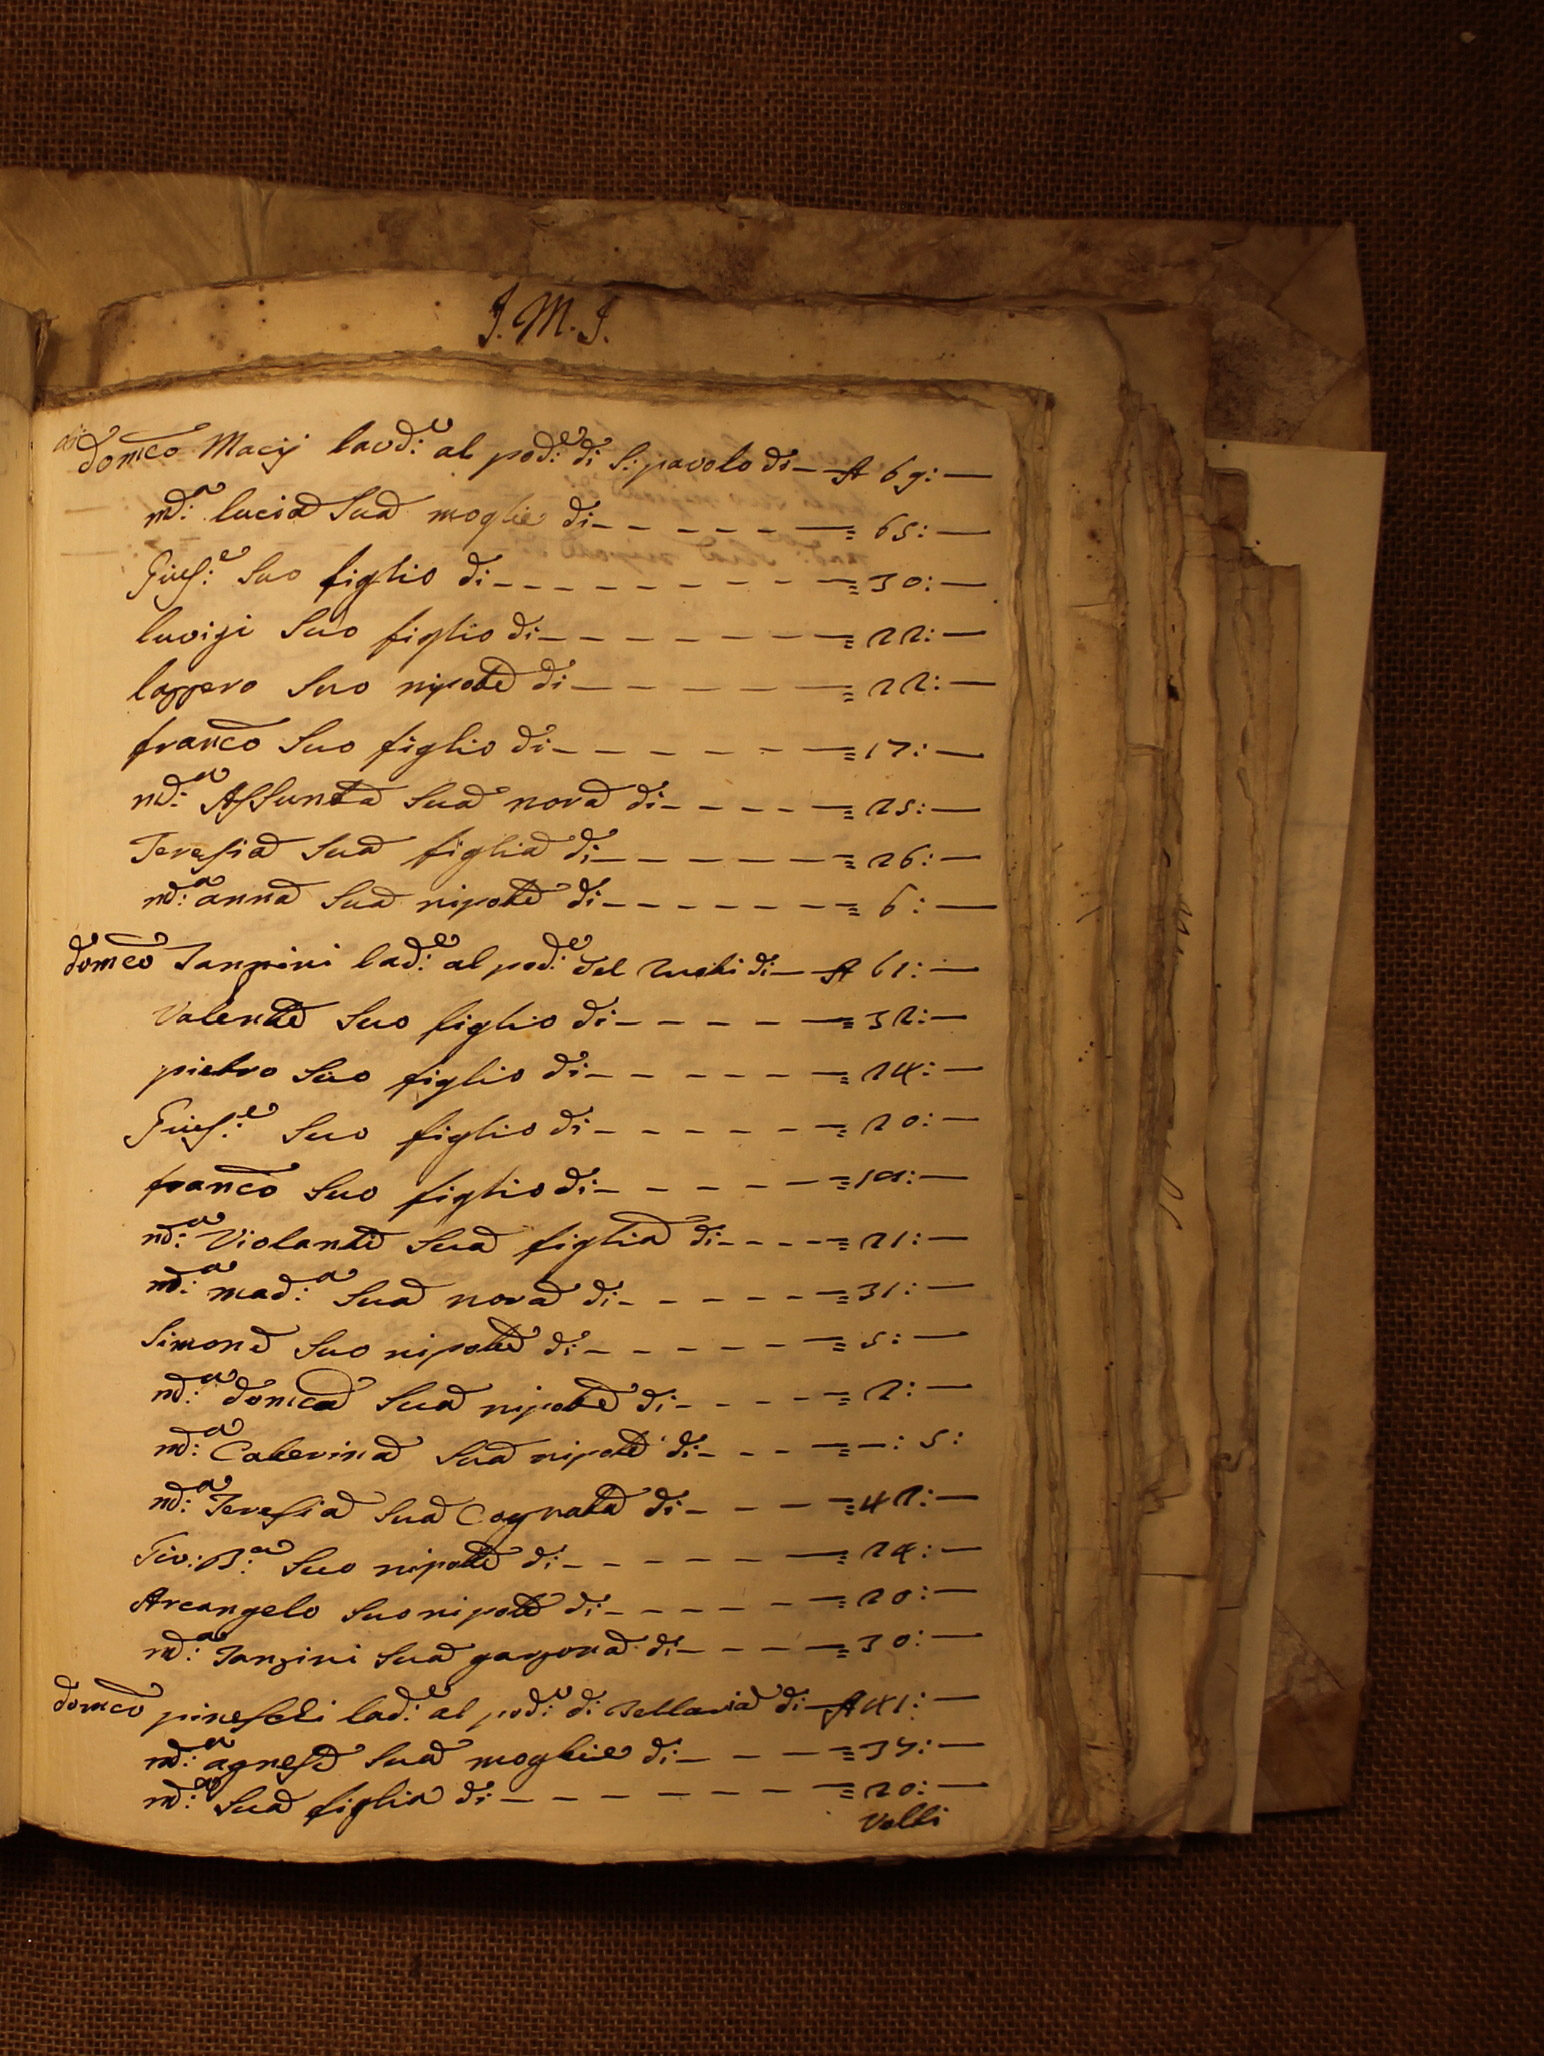 J. M. J.
Domco Macij lavd:e al pod:e di S: pavolo di — A 69: —
md:a lucia Sua moglie di — = 65: —
Gius:e Suo figlio di — = 30: —
luvigi Suo figlio di — = 22: —
lazzero Suo nipote di — = 22: —
franco Suo figlio di — = 17: —
md:a Assunta Sua nora di — = 25: —
Teresia Sua figlia di — = 26: —
md:a anna Sua nipote di — = 6: —
Domco Iannini lad:e al pod:e del di — A 61: —
Valente Suo figlio di — = 32: —
pietro Suo figlio di — = 24: —
Gius:e Suo figlio di — = 20: —
franco Suo figlio di —
md:a Violante Sua figlia di — = 21: —
md:a mad:a Sua nora di — = 31: —
Simone Suo nipote di — = 5: —
md:a domca Sua nipote di — = 2: —
md:a Caterina Sua nipote di — = —: 5:
md:a Teresia Sua Cognata di — = 42: —
Gio: B:a Suo nipote di — = 24: —
Arcangelo Suo nipote di — = 20: —
md:a Sua garzona di — = 30: —
Domco pineschi lad:e al pod:e di Bellavia di — A 41: —
md:a agnese Sua moglie di — = 37: —
md:a Sua figlia di — = 20: —
Volti